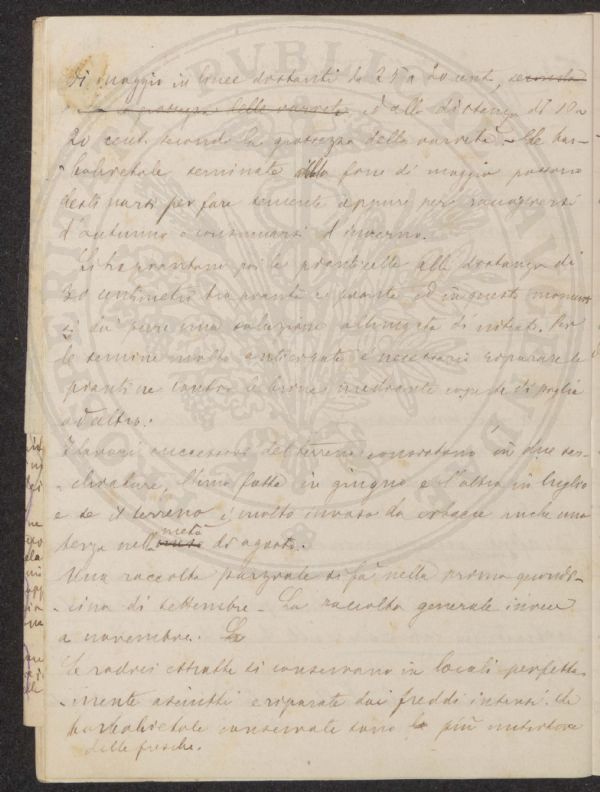 di maggio in linee distanti da 25 a 40 cent, secondo
la grossezza delle varietà, ed alla distanza di 10 a
20 cent. secondo la grossezza della varietà. - Le bar-
-babietole seminate alla fine di maggio possono
destinarsi per fare semente oppure per raccogliersi
d'autunno e consumarsi d'inverno.
Si trapiantano poi le pianticelle alla distanza di
30 centimetri tra pianta e pianta ed in questo momento
si dà pure una soluzione allungata di nitrati. Per
le semine molto anticipate è necessario riparare le
piantine contro le brine mediante coperte di paglia
od altro.
I lavori successivi del terreno consistono in due sar-
-chiature, l'una fatta in giugno e l'altra in luglio
e se il terreno è molto invaso da erbacce anche una
terza nella metà di agosto.
Una raccolta parziale si fa nella prima quindi-
-cina di settembre - La raccolta generale invece
a novembre. Le
Le radici estratte si conservano in locali perfetta-
-mente asciutti e riparate dai freddi intensi. Le
barbabietole conservate sono le più nutritive
delle fresche.